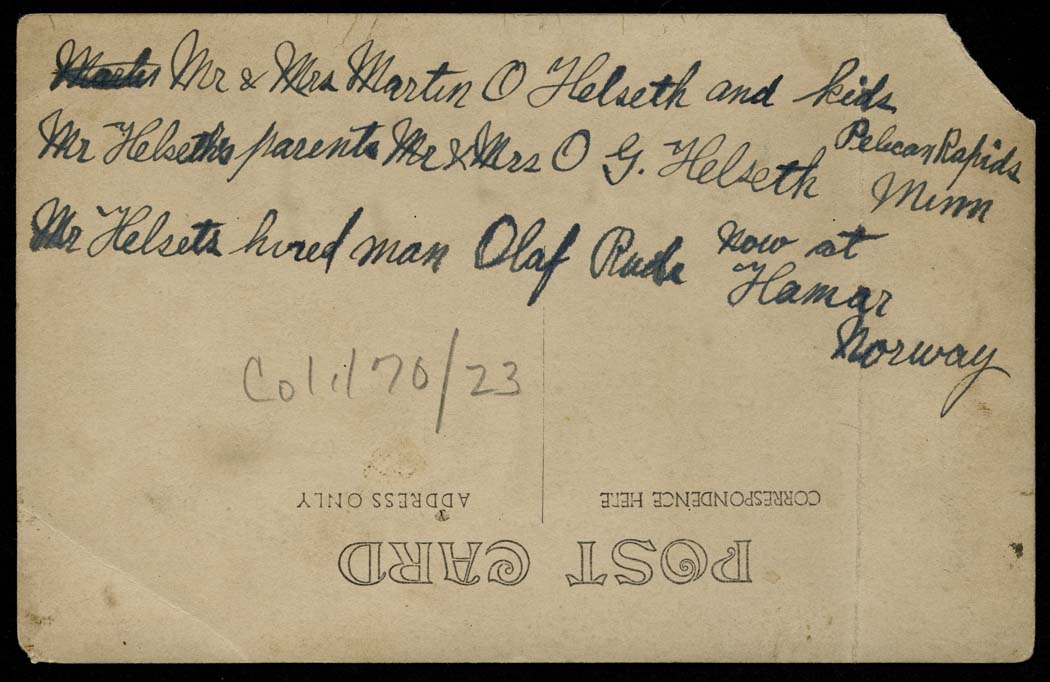 Mr & Mrs Martin O Helseth and kids
Pelican Rapids
Minn
Mr Helseth's parents Mr & Mrs O G. Helseth
Mr Helsets hired man Olaf Rude now at
Hamar
Norway
Col. 170/23
CORRESPONDENCE HERE
ADDRESS ONLY
POST CARD